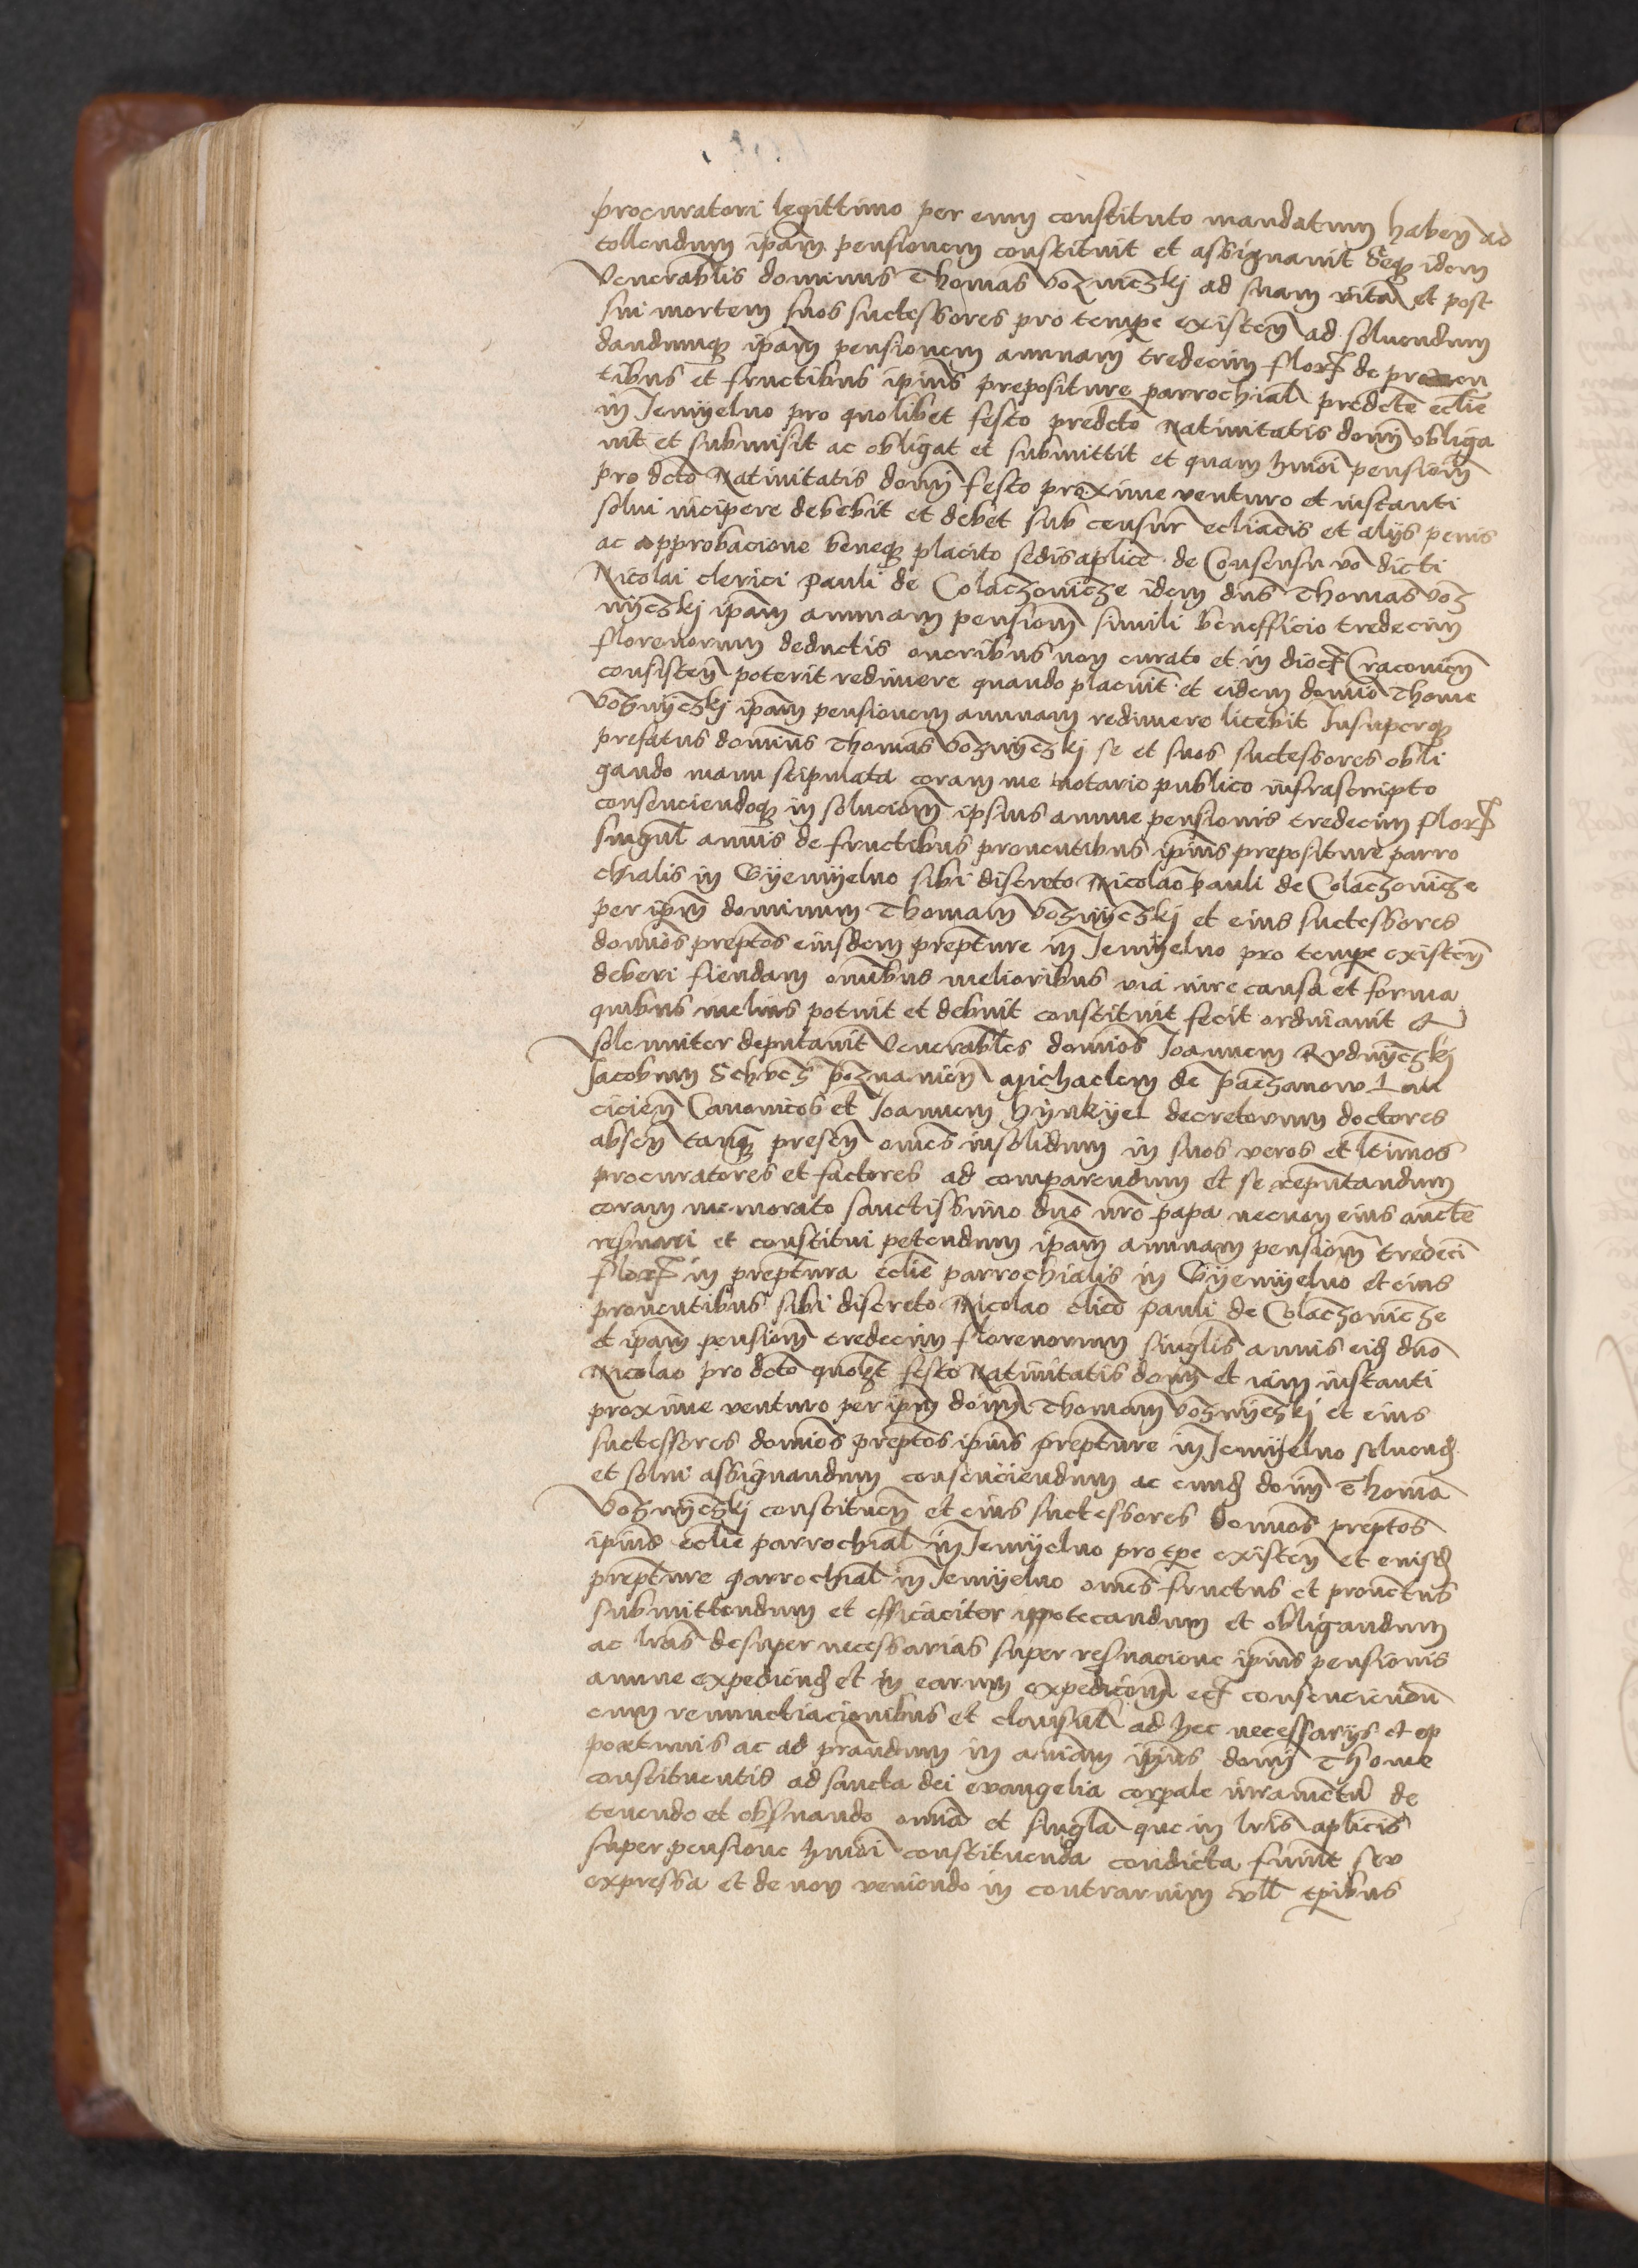 procuratori legittimo per eum constituto mandatum haben ad
tollendum ipam pensionem constituit et assignauit Seq idem
Venerablis dominus Thomas Vozniczskj ad suam vita et post
sui mortem suos successores pro tempe existen ad soluendum
dandumq ipam pensionem annuam tredecim flor de prouen
tibus et fructibus ipius prepositure parrochial predcte eclie
in Jemyelno pro quolibet festo predcto Natiuitatis domj obliga
uit et submisit ac obligat et submittit et quam hmoi pensiom
pro dcto Natiuitatis domj festo proxime venturo et instanti
solui incipere debebit et debet sub censur ecliacis et alijs penis
ac approbacione beneq placito sedis aplice de Consensu vo dicti
Nicolai clerici Pauli de Colaczouicze idem dns Thomas Voz
nyczskj ipam annuam pensiom simili benefficio tredecim
florenorum deductis oneribus non curato et in dioc Cracouien
consisten poterit redimere quando placuit et eidem domio Thome
Voznyczskj ipam pensionem annuam redimere licebit Insuperq
prefatus dominus Thomas Voznyczskj se et suos successores obli
gando manu stipulata coram me notario publico infrascripto
consenciendoq in soluciom ipsius annue pensionis tredecim flor
singul annis de fructibus prouentibus ipius prepositure parro
chialis in Gyemyelno sibi discreto Nicolao Pauli de Colaczouicze
per ipm dominum Thomam Voznyczskj et eius successores
domios preptos eiusdem prepture in Jemyelno pro tempe existen
deberi fiendam omibus melioribus via iure causa et forma
quibus melius potuit et debuit constituit fecit ordinauit et
solenniter deputauit Venerables domios Joannem Rydnyczskj
Jacobum Schvcz Poznanien Michaelem de Paczanow Lan
cicien Canonicos et Joannem Hynkyel decretorum doctores
absen tanq presen omes insolidum in suos veros et ltimos
procuratores et factores ad comparendum et se reputandum
coram memorato sanctissimo dno nro papa necnon eius aucte
resuari et constitui petendum ipam annuam pensiom tredeci
flor in preptura eclie parrochialis in Gyemyelno et eius
prouentibus sibi discreto Nicolao clico Pauli de Colaczouicze
et ipam pensiom tredecim florenorum singlis annis eid dno
Nicolao pro dcto quolzt festo Natiuitatis domj et iam instanti
proxime venturo per ipm doim Thomam Voznyczskj et eius
successores domios preptos ipius prepture in Jemyelno soluend
et solui assignandum consenciendum ac eund doim Thoma
Voznyczskj constituen et eius successores domios preptos
ipius eclie parrochial in Jemyelno pro tpe existen et eiusd
prepture parrochial in Jemyelno omes fructus et prouentus
submittendum et efficaciter ippotecandum et obligandum
ac lras desuper necessarias super resuacione ipius pensionis
annue expediend et in earum expedicom etc consenciendu
cum renunctiacionibus et clausul ad hec necessarijs et op
portunis ac ad prandum in aniam ipius domj Thome
constituentis ad sancta dei evangelia corpale iuramentu de
tenendo et obsuando omia et singla que in lris aplicis
super pensione hmoi constituenda condicta fuint seu
expressa et de non veniendo in contrarium vll tpibus